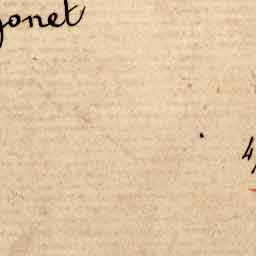 gonet
4